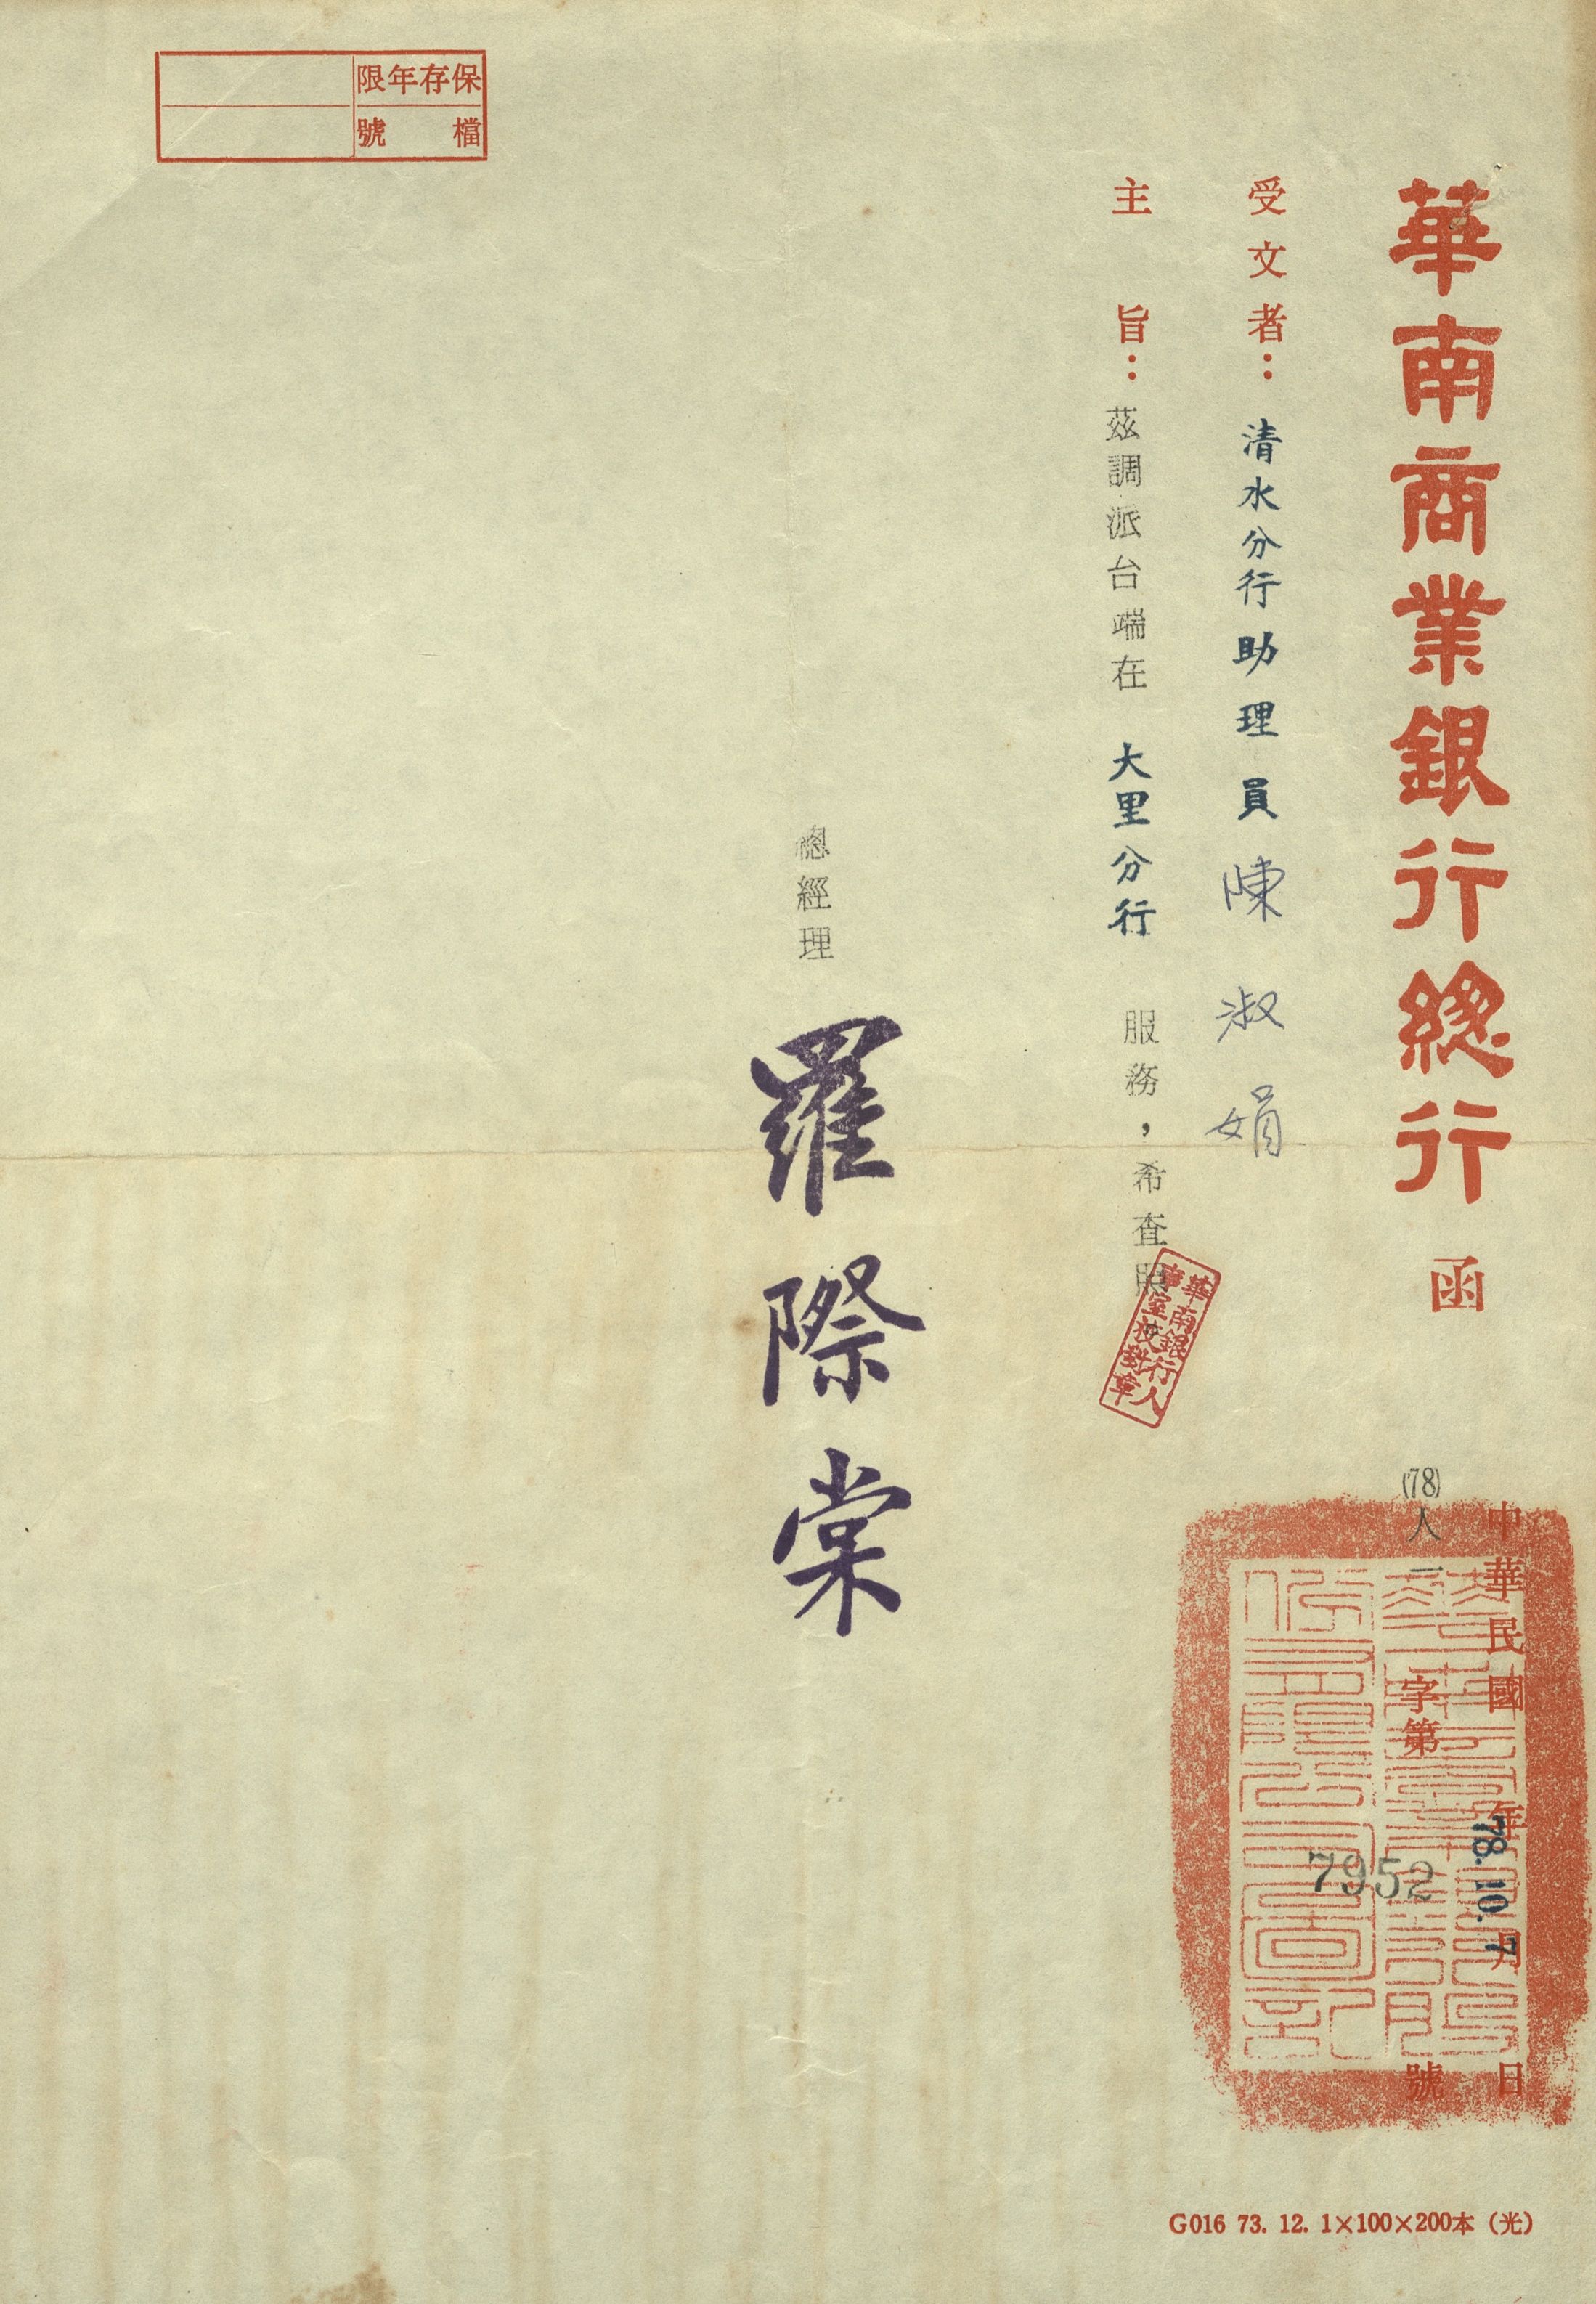 華南商業銀行總行 函
中華民國 年 月 日
78.10.7
(78)人二 字第 7952 號
受文者：清水分行助理員陳淑娟
主旨：茲調派台端在 大里分行 服務，希查照
華南銀行人
事室校對章
總經理 羅際棠
保存年限
檔號
G016 73. 12. 1×100×200本（光）